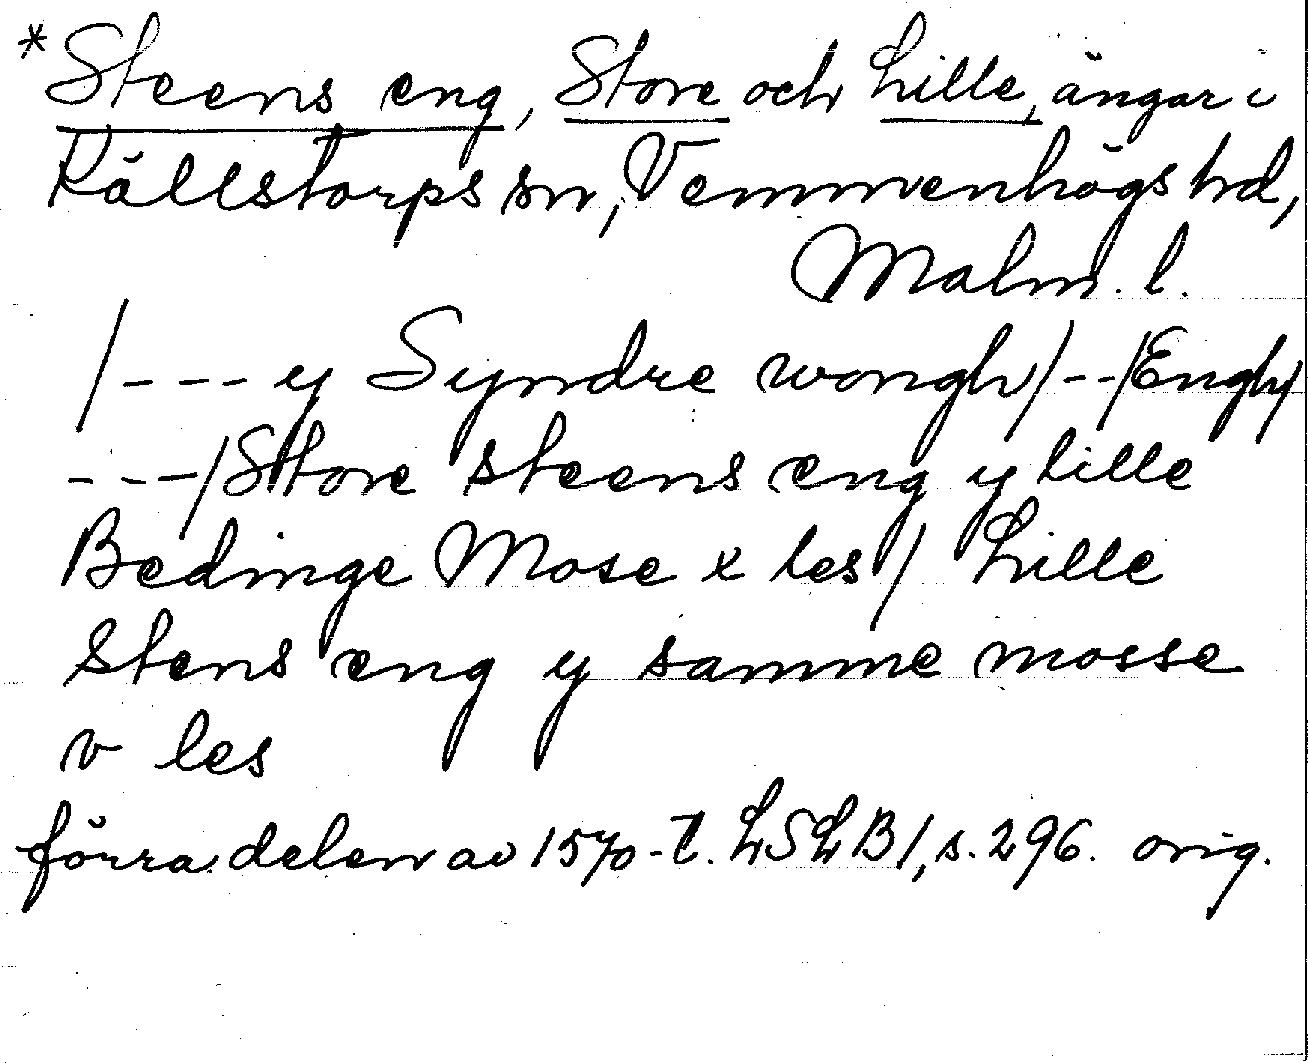 * Steens eng, Store och Lille, ängar i
Källstorps sn, Vemmenhögs hd,
Malm. l.
/--- y Syndre wongh/--/Engh/
---/Store steens eng y lille
Bedinge Mose x les/ Lille
Stens eng y samme mosse
v les
förra delen av 1570-t. LSLB 1, s. 296. orig.